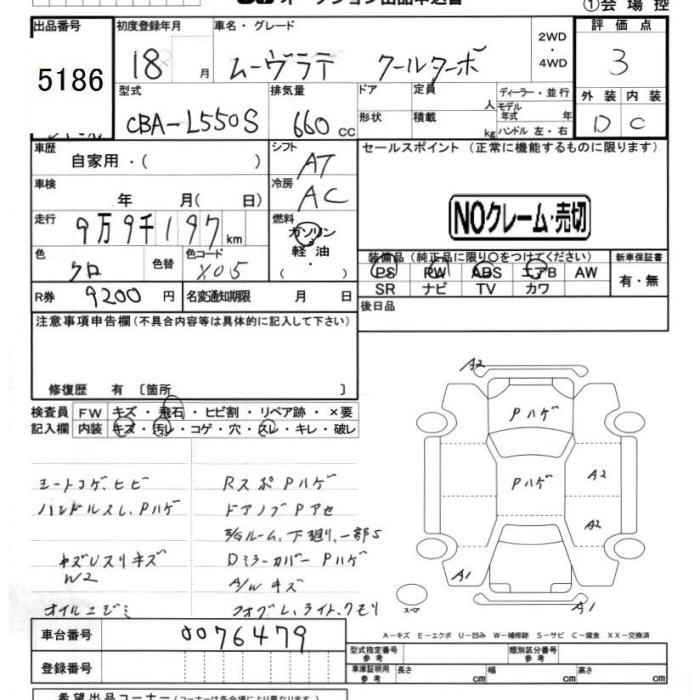 ①会場控
出品番号 初度登録年月 車名・グレード 評価点
5186 18 月 ムーヴラテ クールターボ 2WD・4WD 3
型式 排気量 ドア 定員 人 ディーラー・並行 外装 内装
CBA-L550S 660 cc 形状 積載 kg モデル年式 年 ハンドル 左・右 D C
車歴 自家用・( ) シフト AT セールスポイント (正常に機能するものに限ります)
車検 年 月(日) 冷房 AC
NOクレーム・売切
走行 9万9千197 km 燃料 ガソリン 軽油 ・
色 クロ 色替 色コード X05 ( )
装備品(純正品に限り○をつけてください) 新車保証書
PS PW ABS エアB AW 有・無
SR ナビ TV カワ
R券 9200円 名変通知期限 月 日 後日品
注意事項申告欄(不具合内容等は具体的に記入して下さい)
修復歴 有 〔箇所 〕
検査員 FW キズ・飛石・ヒビ割・リペア跡・×要
記入欄 内装 キズ・汚レ・コゲ・穴・スレ・キレ・破レ
A2
Pハゲ
Pハゲ
A2
A2
A1
A1
スペア
シートコゲ、ヒビ Rスポ Pハゲ
ハンドルスレ、Pハゲ ドアノブPアセ
E/Gルーム、下廻り、一部S
キズUスリキズ Dミラーカバー Pハゲ
W2 A/Wキズ
オイルニジミ フォグレ、ライト、クモリ
A-キズ E-エクボ U-凹み W-補修跡 S-サビ C-腐食 XX-交換済
車台番号 0076479
登録番号
型式指定番号 参考 類別区分番号 参考
車庫証明用 参考 長さ cm 幅 cm 高さ cm
希望出品コーナー